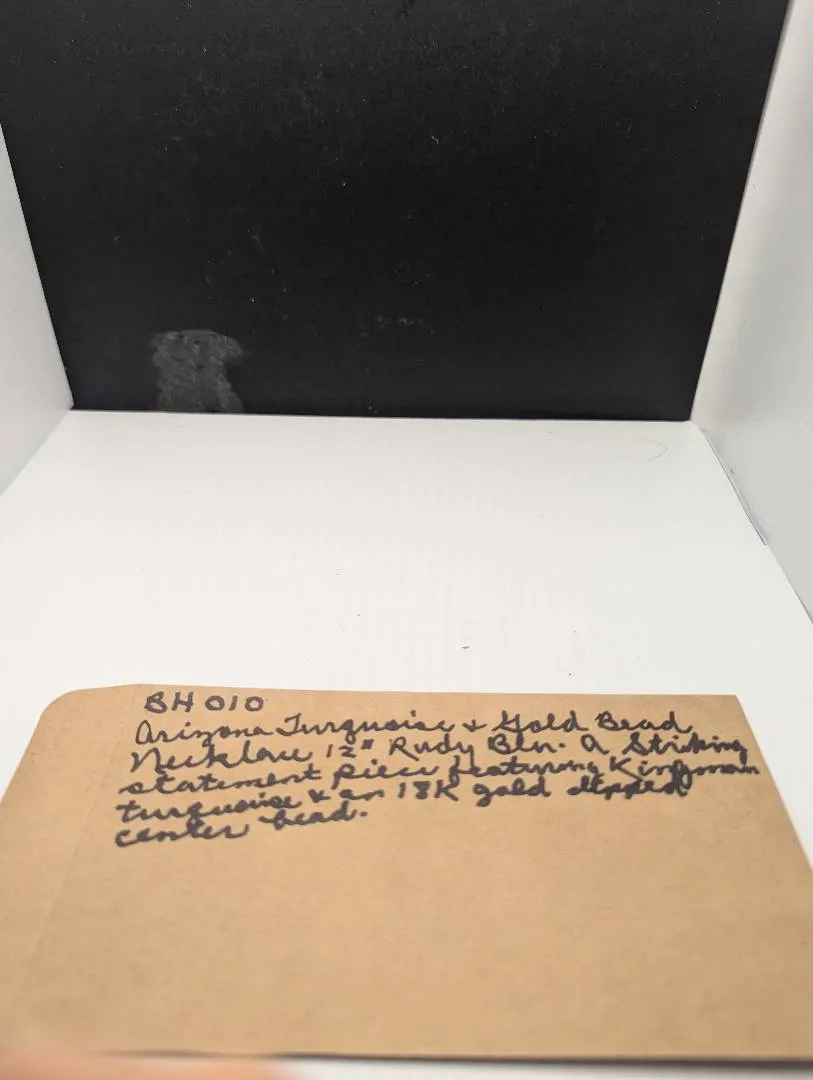 BH 010
Arizona Turquoise & Gold Bead
Necklace 12" Rudy Bln. A Striking
statement piece featuring Kingman
turquoise & an 18K gold dipped
center bead.